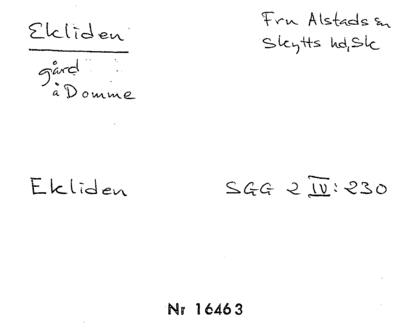 Ekliden
Fru Alstads sn
Skytts hd, Sk
gård
å Domme
Ekliden
SGG 2 IV: 230
Nr 16463